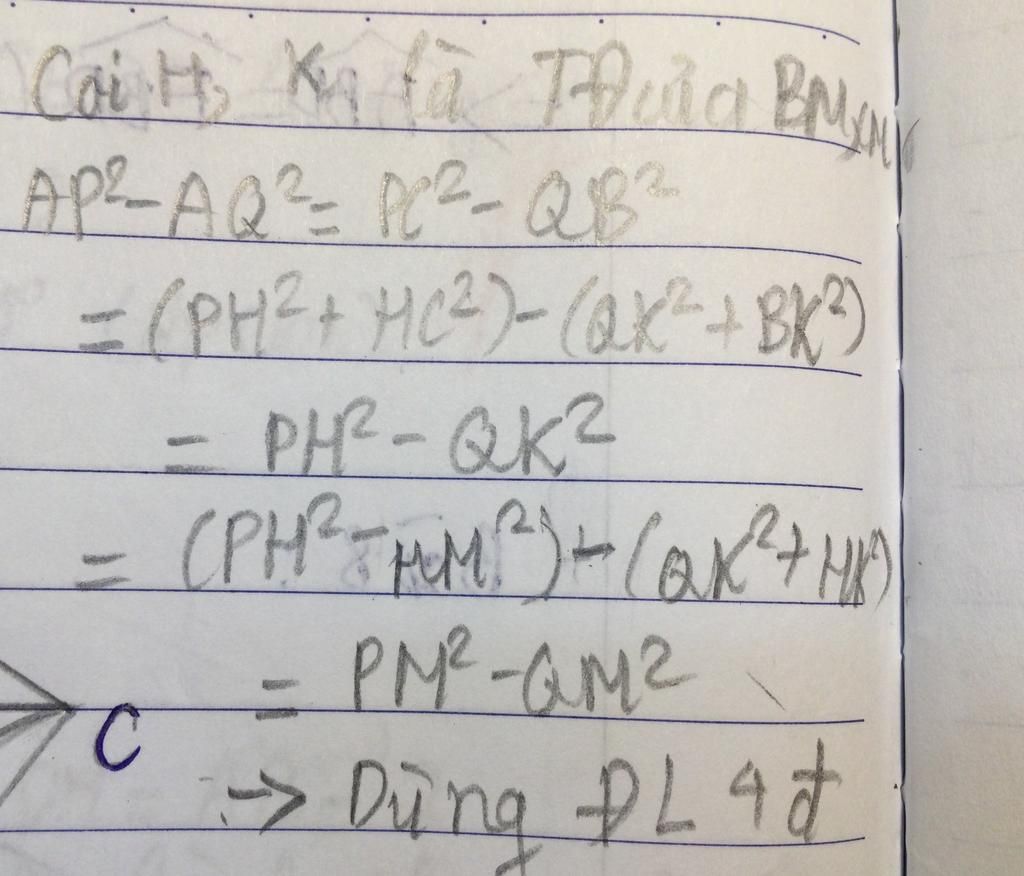 Coi H, K, là TĐ của BM, CM
AP² - AQ² = PC² - QB²
= (PH² + HC²) - (QK² + BK²)
= PH² - QK²
= (PH² - HM²) - (QK² + HK²)
= PM² - QM²
C
-> Dùng ĐL 4 đ